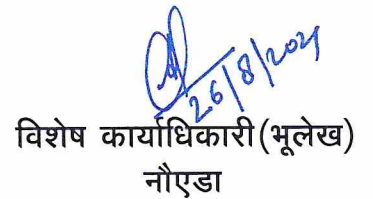 26/8/2021
विशेष कार्याधिकारी(भूलेख)
नौएडा